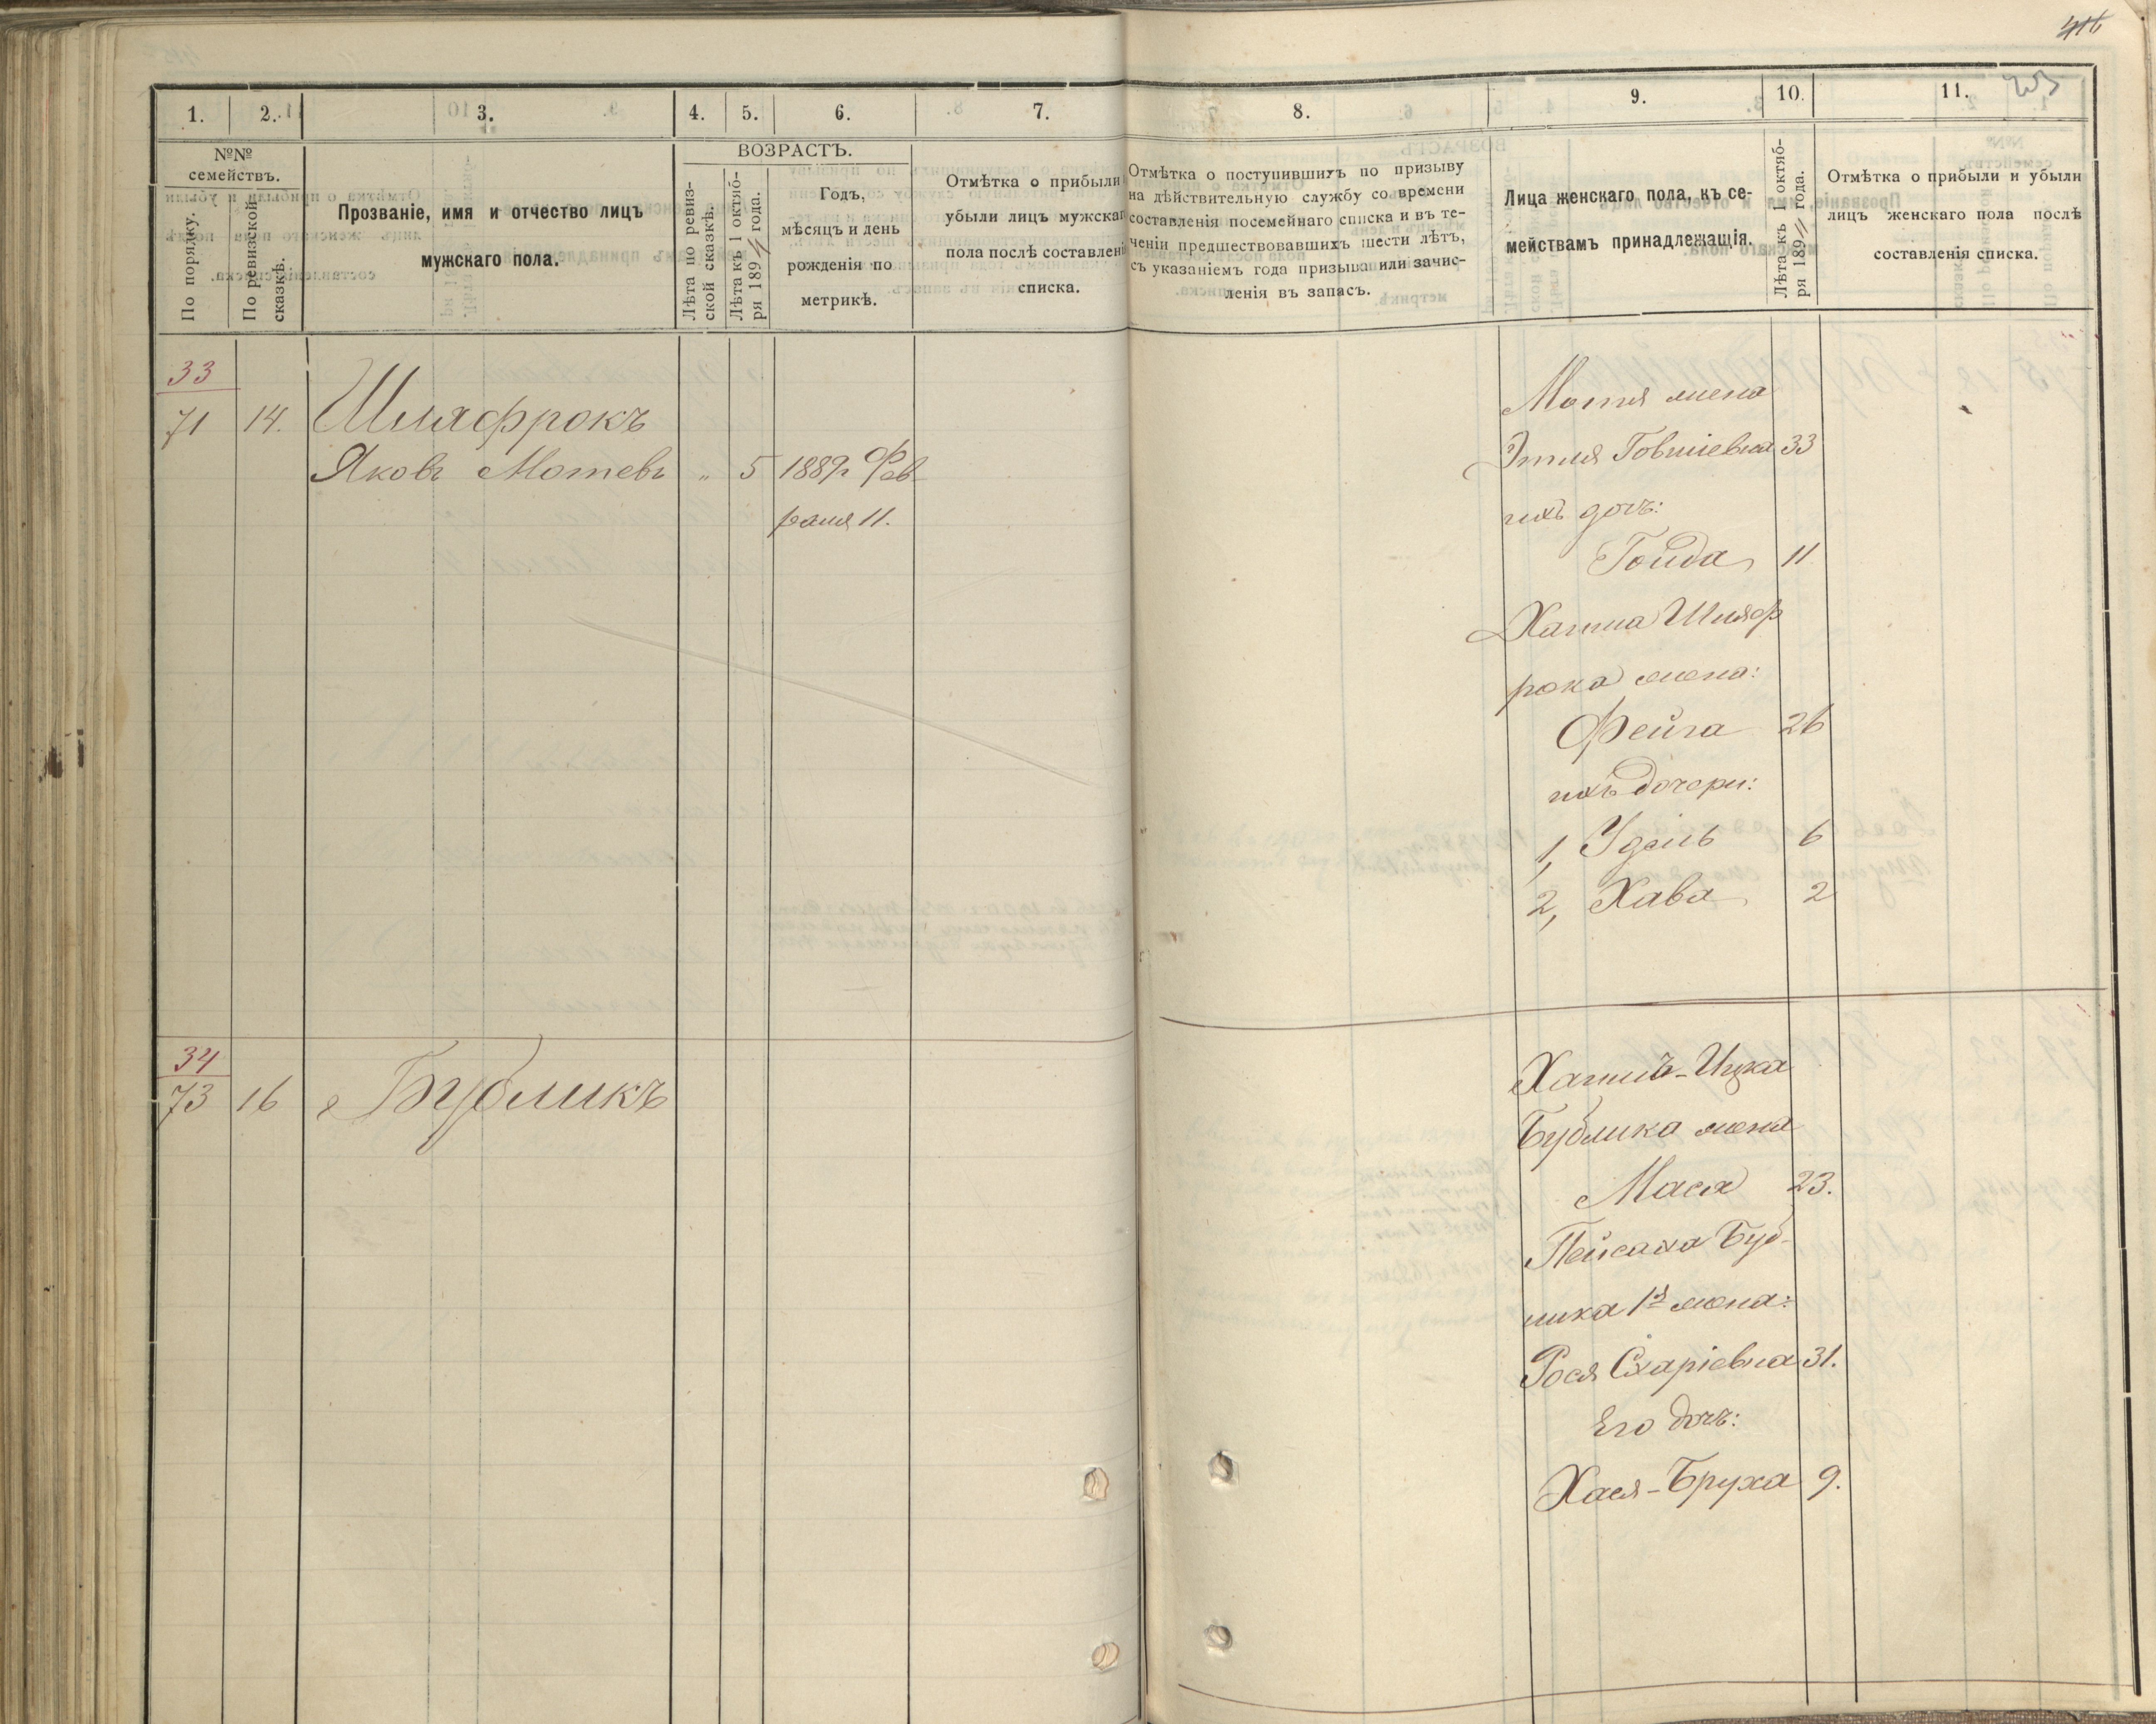 416
203
1.
2.
3.
4.
5.
6.
7.
8.
9.
10.
11.
№№ семействъ.
По порядку.
По ревизской сказкѣ.
Прозваніе, имя и отчество лицъ
мужскаго пола.
ВОЗРАСТЪ.
Лѣта по ревиз-
ской сказкѣ.
Лѣта къ 1 октяб-
ря 189 года.
Годъ,
мѣсяцъ и день
рожденія по
метрикѣ.
Отмѣтка о прибыли
убыли лицъ мужскаг
пола послѣ составлені
списка.
Отмѣтка о поступившихъ по призыву
на дѣйствительную службу со времени
составленія посемейнаго списка и въ те-
ченіи предшествовавшихъ шести лѣтъ,
съ указаніемъ года призыва или зачис-
ленія въ запасъ.
Лица женскаго пола, къ се-
мействамъ принадлежащія.
Лѣта къ 1 октяб-
ря 189 года.
Отмѣтка о прибыли и убыли
лицъ женскаго пола послѣ
составленія списка.
33
71 14. Шляфрокъ
Яковъ Мотевъ " 5 1889г. Фев-
раля 11.
Мотя жена
Этля Говшіевна 33
ихъ дочь:
Гоида 11
Хаима Шляф
рока жена:
Фейга 26
ихъ дочери:
1, Удель 6
2, Хава 2
34
73 16 Бубликъ
Хаимъ-Ицка
Бублика жена
Мася 23.
Пейсаха Буб-
лика 1я жена:
Рося Схаріевна 31.
Его дочь:
Хася-Бруха 9.